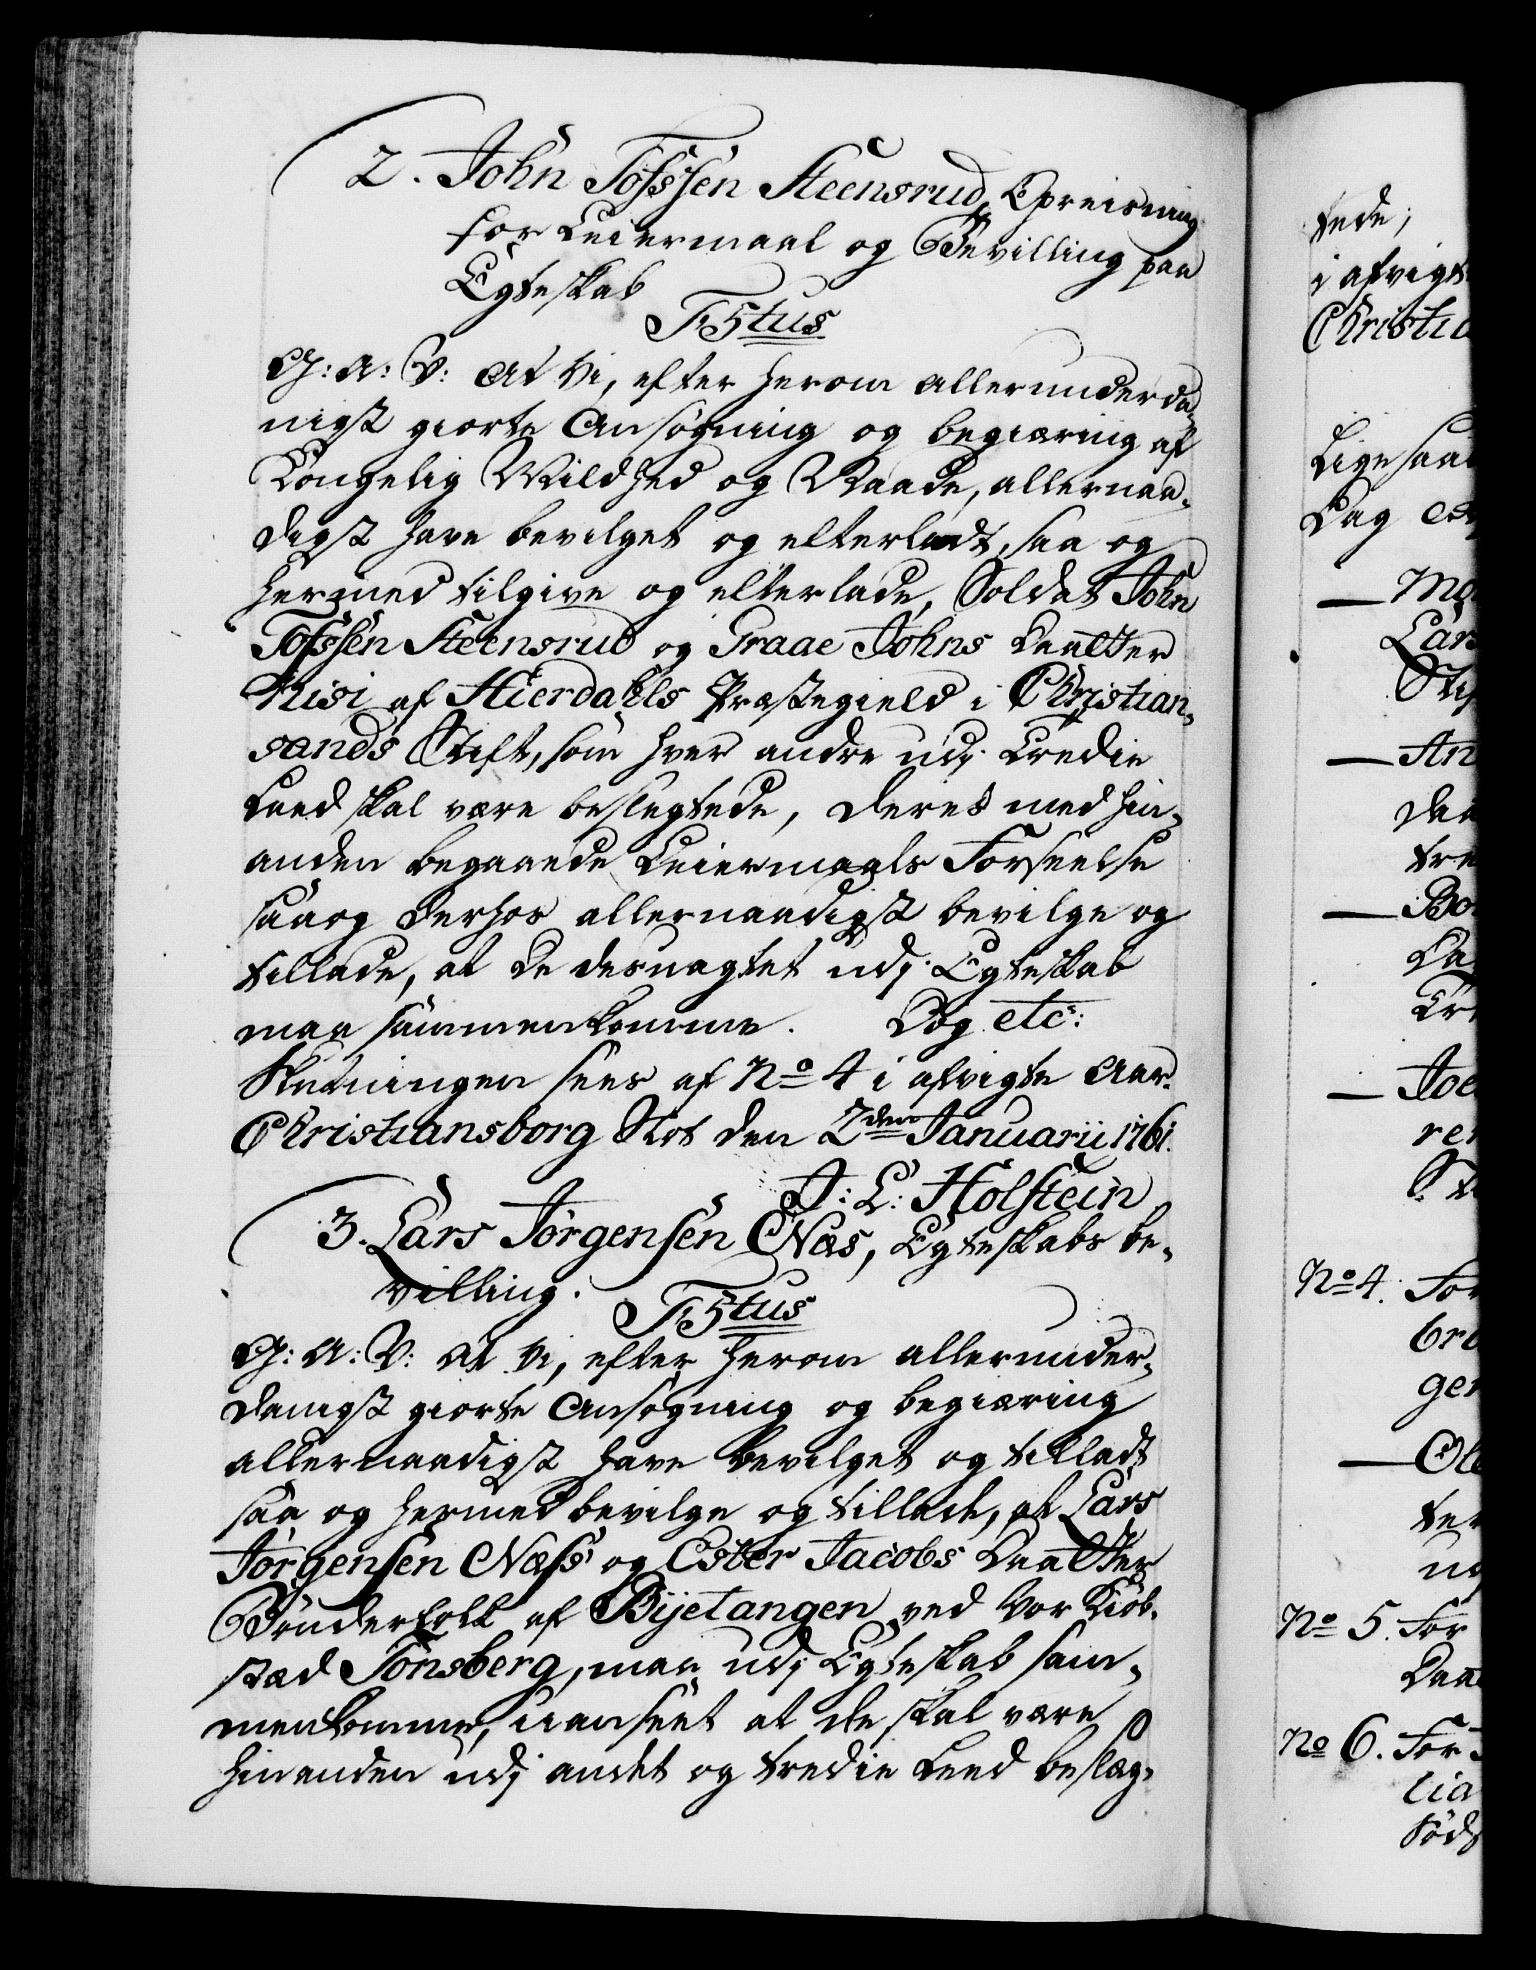 2. John Tofssen Steensrud, Opreisning
for Leiermaal og Bevilling paa
Egteskab
F5tus
G: A: V: At Vi, efter herom allerunderda-
nigst giorte Ansøgning og begiæring af
Kongelig Mildhed og Naade, allernaa-
digst have bevilget og efterladt, saa og
hermed tilgive og efterlade, Soldat John
Tofssen Steensrud og Graae Johns Daatter
Nisi af Hierdahls Præstegield i Christian-
sands Stift, som hver andre udj tredie
Leed skal være beslegtede, deres med hin-
anden begaaede Leiermaals Forseelse
saa og derhos allernaadigst bevilge og
tillade, at de desuagtet udj Egteskab
maa sammenkomme. Dog etc:
Slutningen sees af No 4 i afvigte Aar.
Christiansborg Slot den 2den Januarii 1761.
J: L: Holstein
3. Lars Jørgensen Næs, Egteskabs be-
villing.
F5tus
G: A: V: At Vi, efter herom allerunder-
danigst giorte Ansøgning og begiæring
allernaadigst have bevilget og tilladt
saa og hermed bevilge og tillade, at Lars
Jørgensen Næss og Ester Jacobs Daatter
Bønderfolk af Bÿetangen ved Vor Kiøb-
stæd Tønsberg, maa udj Egteskab sam-
menkomme, uanseet at de skal være
hinanden udj andet og tredie Leed beslæg-
tede;
i afvigt
Christia
Ligesaa
Dag
Lars
An
tre
Joe
No 4. For
bro
ger
Ole
ter
ud
No 5. For
Daa
No 6. For